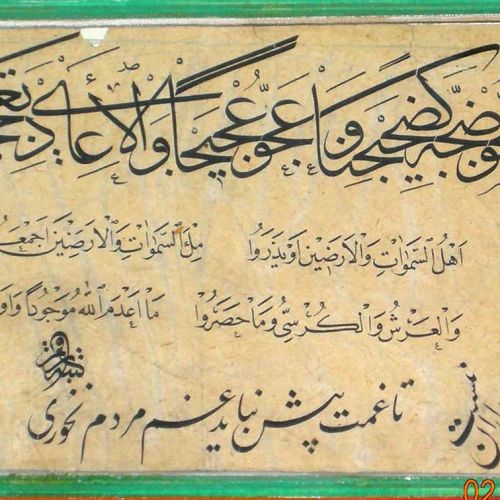 كضجيجنا وعجوا عجيجا والاعادي
اَهْلُ السَّمٰواتِ وَالْاَرَضٖينَ اَوْ يَذَرُوا مِلَٔ السَّمٰواتِ وَالْاَرَضٖينَ
وَالْعَرْشُ وَالْكُرْسِىُّ وَمَا حَصَرُوا مَا اَعْدَمَ اللهُ مَوْجُودًا
تا غمت پیش نیاید غم مردم نخوری